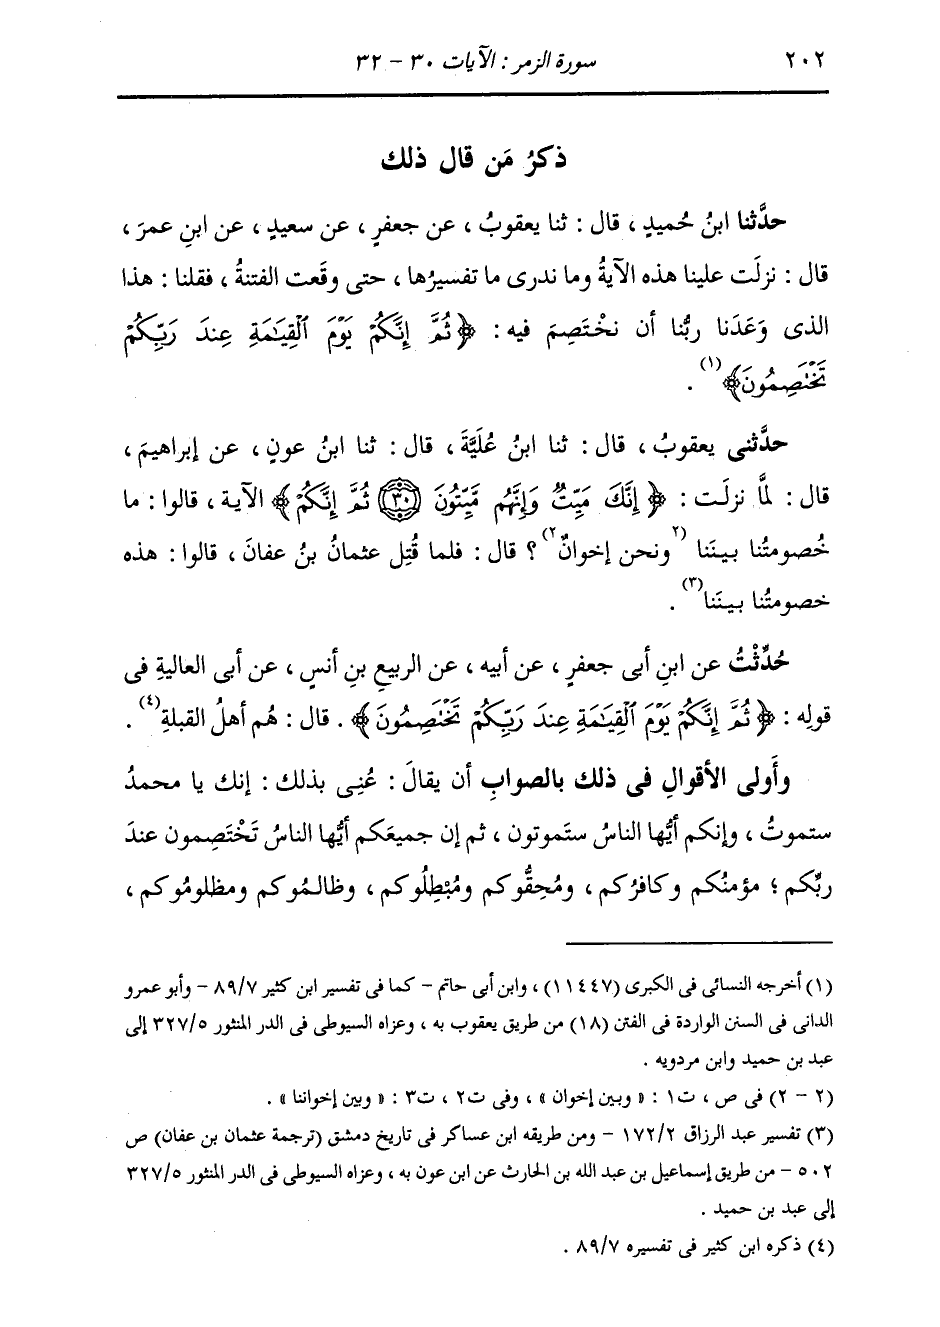 ٢٠٢ سورة الزمر : الآيات ٣٠ - ٣٢
ذكرُ مَن قال ذلك
حدَّثنا ابنُ حُميدٍ ، قال : ثنا يعقوبُ ، عن جعفرٍ ، عن سعيدٍ ، عن ابنِ عمرَ ،
قال : نزلَت علينا هذه الآيةُ وما ندرى ما تفسيرُها ، حتى وقَعت الفتنةُ ، فقلنا : هذا
الذى وَعَدَنا ربُّنا أن نخْتَصِمَ فيه : ﴿ ثُمَّ إِنَّكُمْ يَوْمَ ٱلْقِيَـٰمَةِ عِندَ رَبِّكُمْ
تَخْتَصِمُونَ﴾(١) .
حدَّثنى يعقوبُ ، قال : ثنا ابنُ عُلَيَّةَ ، قال : ثنا ابنُ عونٍ ، عن إبراهيمَ ،
قال : لمَّا نزلَت : ﴿ إِنَّكَ مَيِّتٌ وَإِنَّهُم مَّيِّتُونَ ﴿٣٠﴾ ثُمَّ إِنَّكُمْ﴾ الآية ، قالوا : ما
خُصومتُنا بينَنا (٢ونحن إخوانٌ٢) ؟ قال : فلما قُتِل عثمانُ بنُ عفانَ ، قالوا : هذه
خصومتُنا بينَنا(٣) .
حُدِّثْتُ عن ابنِ أبى جعفرٍ ، عن أبيه ، عن الربيعِ بنِ أنسٍ ، عن أبى العاليةِ فى
قولِه : ﴿ ثُمَّ إِنَّكُمْ يَوْمَ ٱلْقِيَـٰمَةِ عِندَ رَبِّكُمْ تَخْتَصِمُونَ﴾ . قال : هُم أهلُ القبلةِ(٤) .
وأَولى الأقوالِ فى ذلك بالصوابِ أن يقالَ : عُنِى بذلك : إنك يا محمدُ
ستموتُ ، وإنكم أيُّها الناسُ ستَموتون ، ثم إن جميعَكم أيُّها الناسُ تَخْتَصِمون عندَ
ربِّكم ؛ مؤمنُكم وكافرُكم ، ومُحِقُّوكم ومُبْطِلُوكم ، وظالمُوكم ومظلومُوكم ،
(١) أخرجه النسائى فى الكبرى (١١٤٤٧) ، وابن أبى حاتم - كما فى تفسير ابن كثير ٨٩/٧ - وأبو عمرو
الدانى فى السنن الواردة فى الفتن (١٨) من طريق يعقوب به ، وعزاه السيوطى فى الدر المنثور ٣٢٧/٥ إلى
عبد بن حميد وابن مردويه .
(٢ - ٢) فى ص ، ت١ : « وبين إخوان » ، وفى ت٢ ، ت٣ : « وبين إخواننا » .
(٣) تفسير عبد الرزاق ١٧٢/٢ - ومن طريقه ابن عساكر فى تاريخ دمشق (ترجمة عثمان بن عفان) ص
٥٠٢ - من طريق إسماعيل بن عبد الله بن الحارث عن ابن عون به ، وعزاه السيوطى فى الدر المنثور ٣٢٧/٥
إلى عبد بن حميد .
(٤) ذكره ابن كثير فى تفسيره ٨٩/٧ .